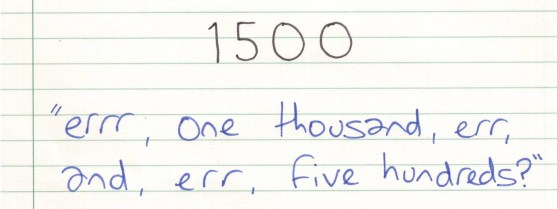 1500
"errr, one thousand, err,
and, err, five hundreds?"